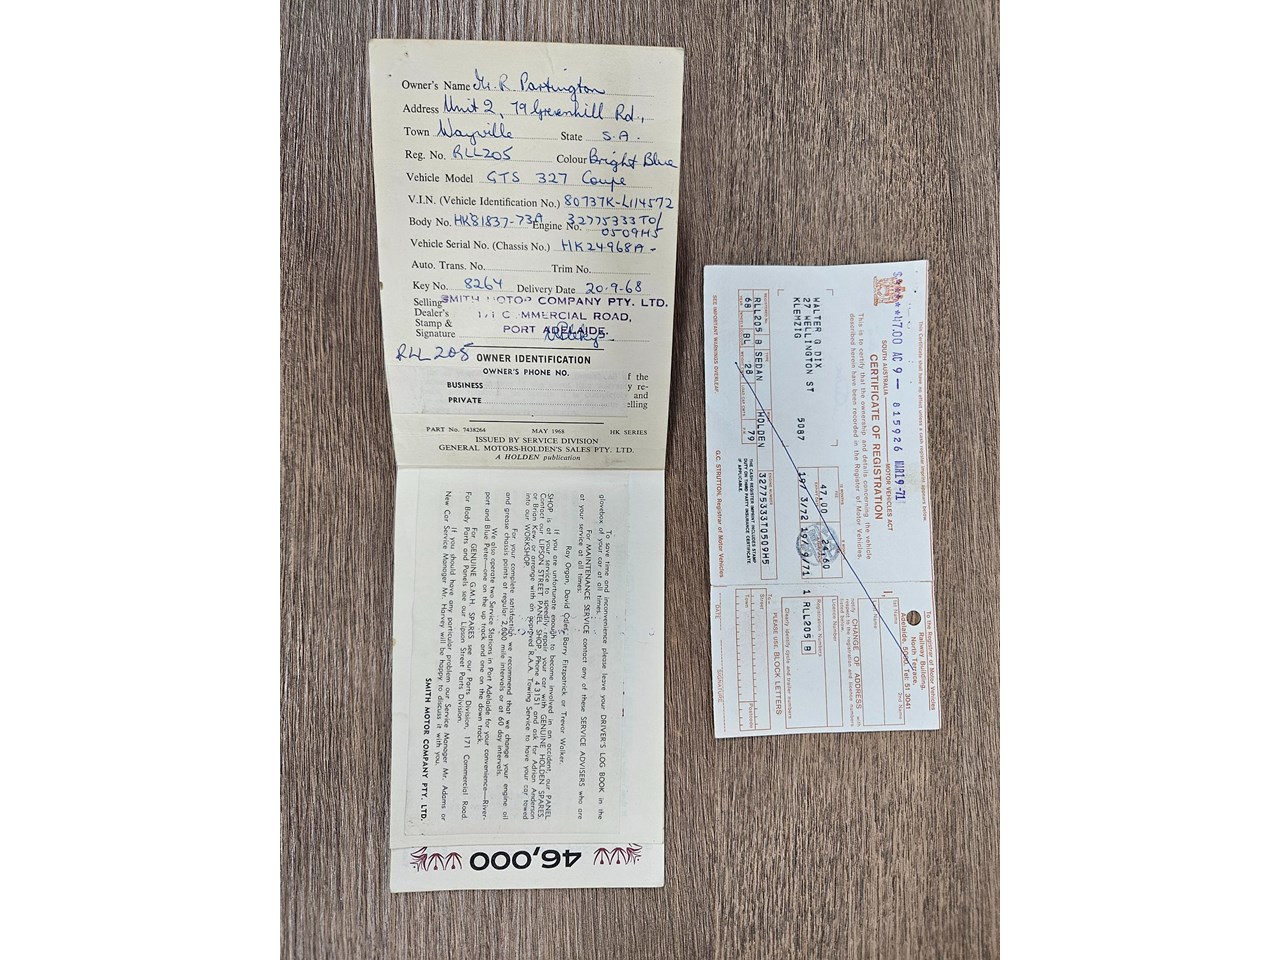 Owner's Name Mr. R. Partington
Address Unit 2, 79 Greenhill Rd.,
Town Wayville State S.A.
Reg. No. RLL205 Colour Bright Blue
Vehicle Model GTS 327 Coupe
V.I.N. (Vehicle Identification No.) 80737K-L114572
Body No. HK81837-73A Engine No. 32775333TO/
0509H5
Vehicle Serial No. (Chassis No.) HK24968A-
Auto. Trans. No. Trim No.
Key No. 8264 Delivery Date 20-9-68
Selling SMITH MOTOR COMPANY PTY. LTD.
Dealer's COMMERCIAL ROAD,
Stamp & PORT ADELAIDE.
Signature
RLL 205 OWNER IDENTIFICATION
OWNER'S PHONE NO.
BUSINESS
PRIVATE
f the
y re-
and
elling
PART No. 7438264 MAY 1968 HK SERIES
ISSUED BY SERVICE DIVISION
GENERAL MOTORS-HOLDEN'S SALES PTY. LTD.
A HOLDEN publication
To save time and inconvenience please leave your DRIVER'S LOG BOOK in the
glovebox of your car at all times.
For MAINTENANCE SERVICE contact any of these SERVICE ADVISERS who are
at your service at all times:
Ray Organ, David Coles, Barry Fitzpatrick or Trevor Walker.
If you are unfortunate enough to become involved in an accident, our PANEL
SHOP is at your service to speedily repair your car with GENUINE HOLDEN SPARES.
Contact our LIPSON STREET PANEL SHOP, Phone 4 3151 and ask for Adrian Anderson
or Brian Kew, or arrange with an approved R.A.A. Towing Service to have your car towed
into our WORKSHOP.
For your complete satisfaction we recommend that we change your engine oil
and grease chassis points at regular 2,000 mile intervals or at 60 day intervals.
We also operate two Service Stations in Port Adelaide for your convenience—River-
pere and Blue Peter—one on the up track and one on the down track.
For GENUINE G.M.H. SPARES see our Parts Division, 171 Commercial Road.
For Body Parts and Panels see our Lipson Street Parts Division.
If you should have any particular problem our Service Manager Mr. Adams or
New Car Service Manager Mr. Harvey will be happy to discuss it with you.
SMITH MOTOR COMPANY PTY. LTD.
46,000
This Certificate shall have no effect unless a cash register imprint appears below.
$***47.00 AC 9— 815926 MAR19-71
SOUTH AUSTRALIA MOTOR VEHICLES ACT
CERTIFICATE OF REGISTRATION
This is to certify that the ownership and details concerning the vehicle
described herein have been recorded in the Register of Motor Vehicles.
WALTER G DIX
27 WELLINGTON ST
KLEMZIG 5087
47.00 24.60
19/ 3/72 19/ 9/71
RLL205 B SEDAN HOLDEN 32775333T0509H5
68 BL 28 79
THE CASH REGISTER IMPRINT INCLUDES STAMP
DUTY ON THIRD PARTY INSURANCE CERTIFICATE,
IF APPLICABLE.
SEE IMPORTANT WARNINGS OVERLEAF. G.C. STRUTTON, Registrar of Motor Vehicles
To the Registrar of Motor Vehicles
Railway Building,
North Terrace,
Adelaide, 5000 Tel: 51 3041
notify CHANGE OF ADDRESS with
respect to the registration and licence numbers
listed below.
Licence Number
Registration Numbers
1 RLL205 B
Clearly identify cycle and trailer numbers
PLEASE USE BLOCK LETTERS
To:
Street
Town Postcode
DATE SIGNATURE